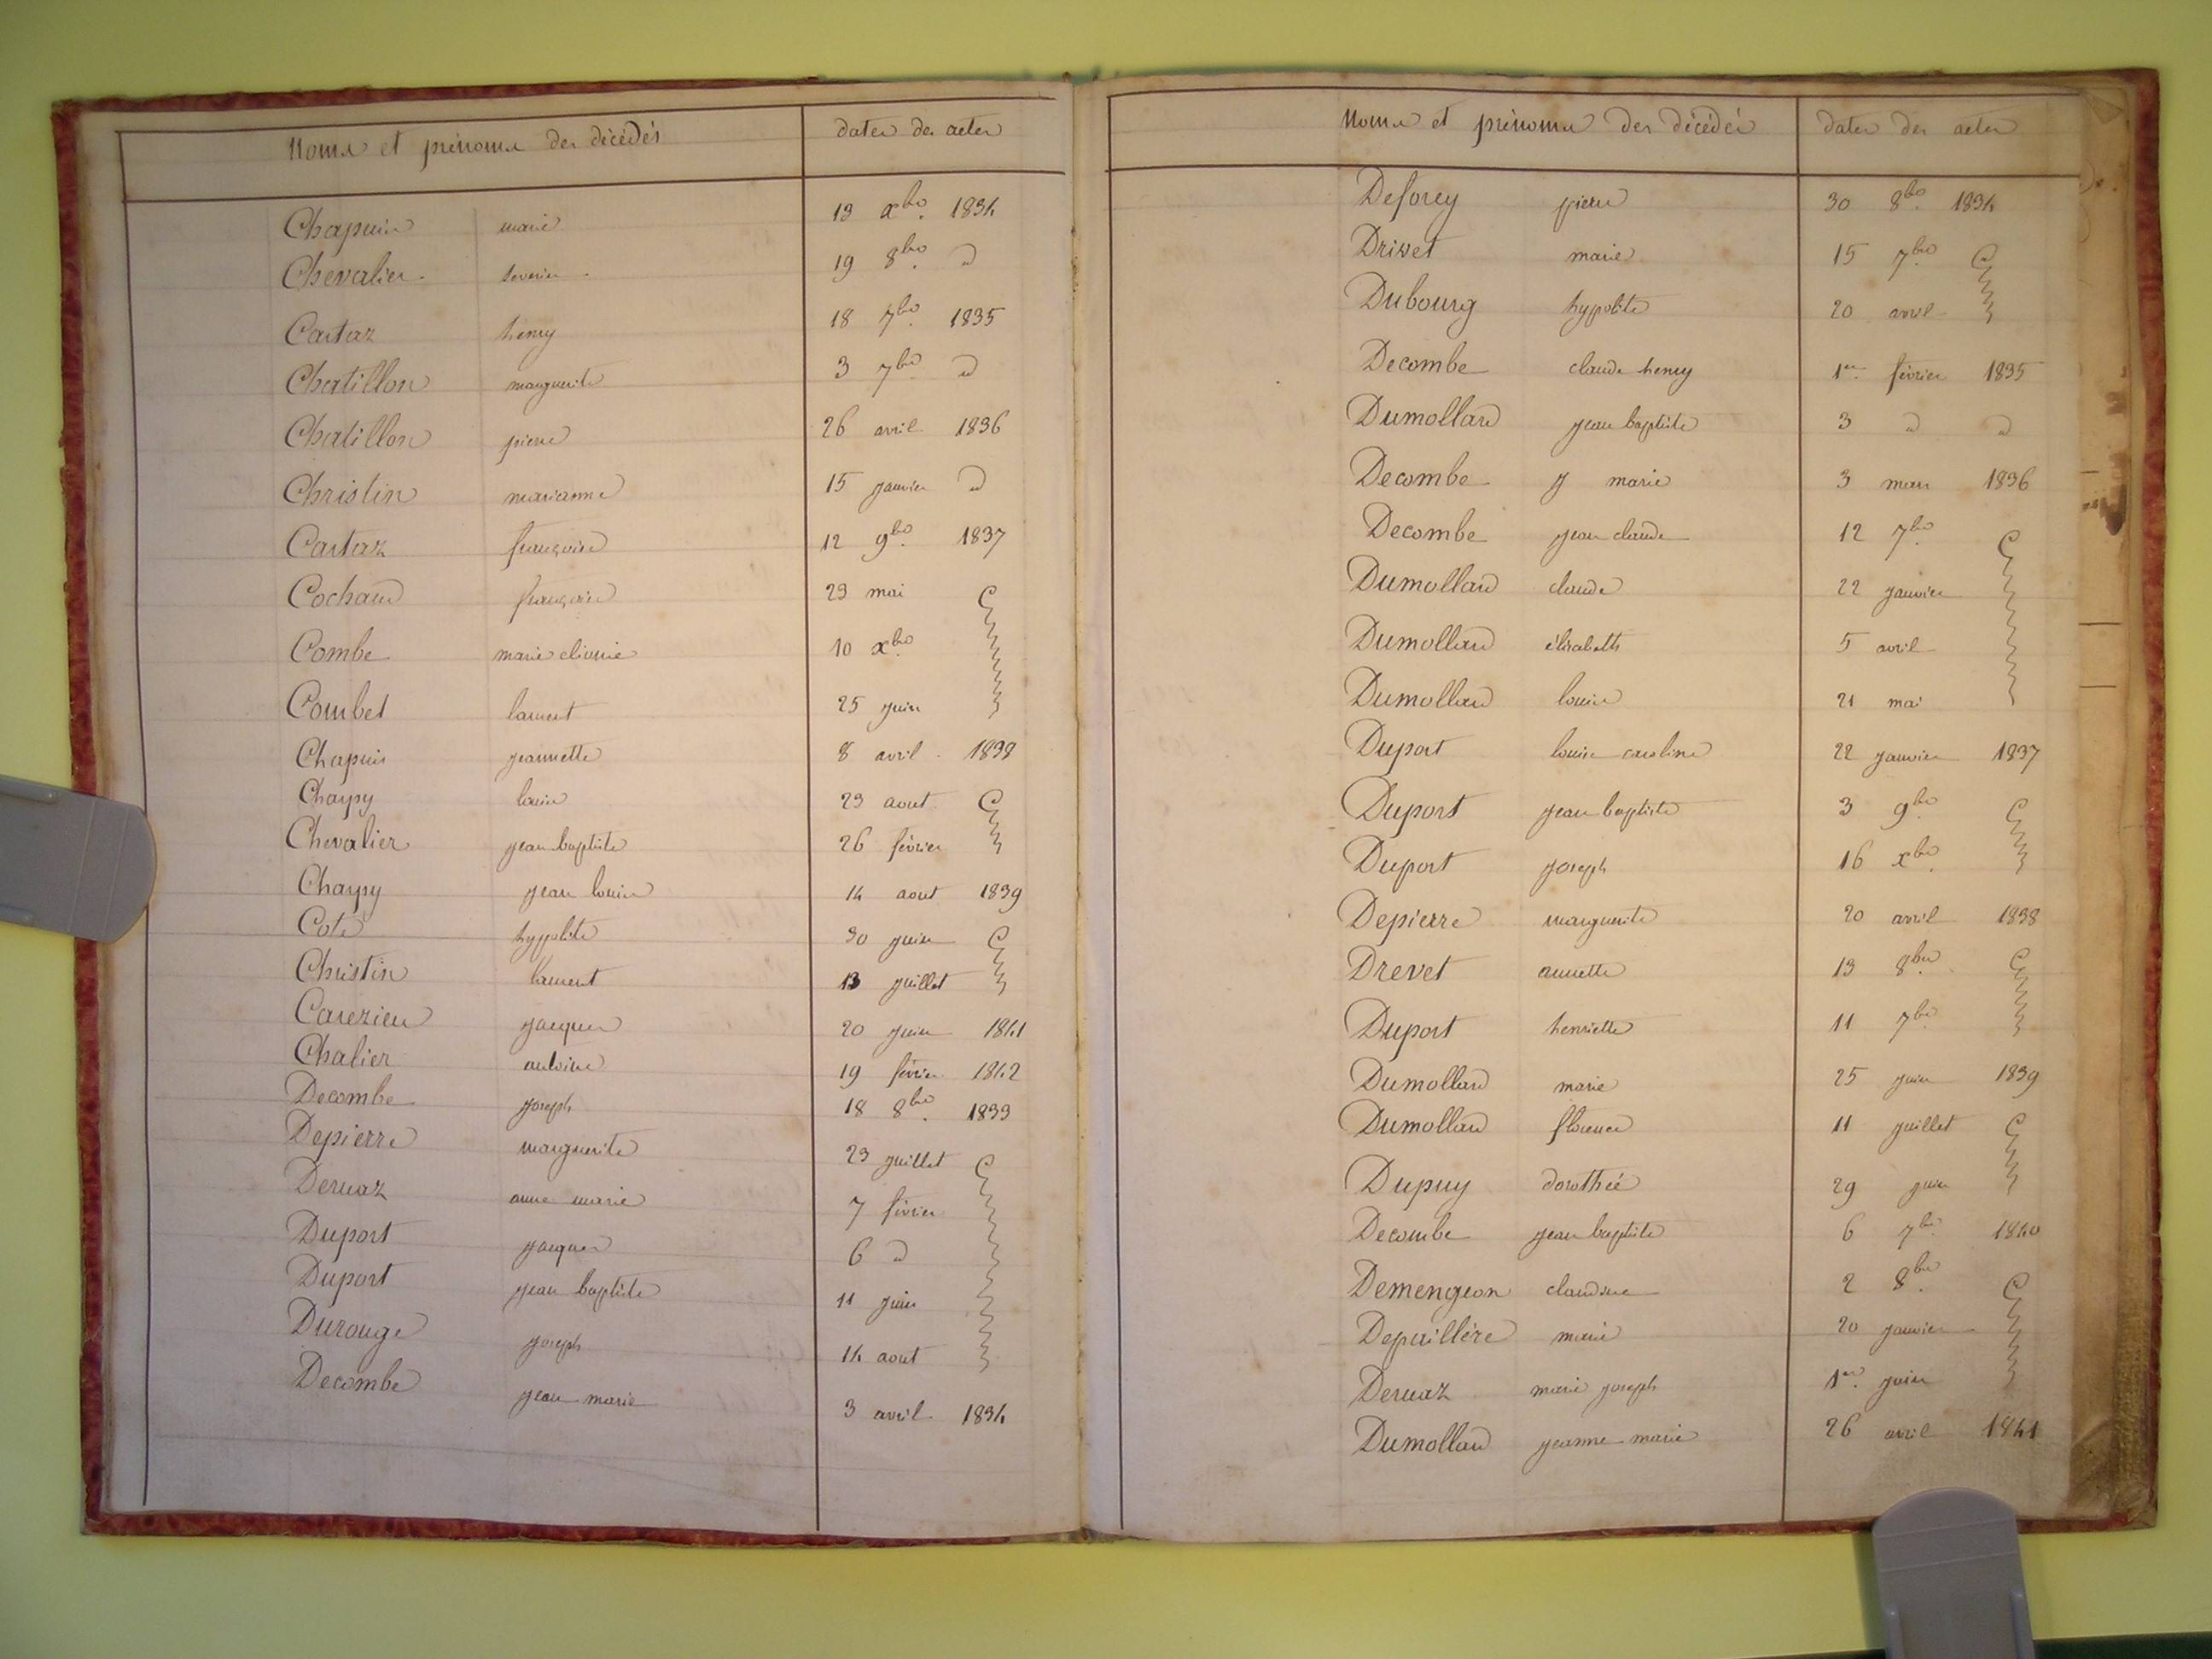 Noms et prénoms des décédés dates des actes
Chapuis marie 13 xbre 1834
Chevalier severin 19 8bre d
Cartaz henry 18 7bre 1835
Chatillon marguerite 3 7bre d
Chatillon pierre 26 avril 1836
Christin marianne 15 janvier d
Cartaz françoise 12 9bre 1837
Cochaud françoise 23 mai
Combe marie 10 xbre
Combet laurent 25 juin
Chapuis jeannette 8 avril 1838
Chaspy louis 23 aout
Chevalier jean baptiste 26 février
Chaspy jean louis 14 aout 1839
Coté hypolite 30 juin
Christin laurent 13 juillet
Carezieu jacques 20 juin 1841
Chalier antoine 19 février 1842
Decombe joseph 18 8bre 1833
Depierre marguerite 23 juillet
Deruaz anne marie 7 février
Duport jacques 6 d
Duport jean baptiste 11 juin
Durouge joseph 14 aout
Decombe jean marie 3 avril 1834
Noms et prénoms des décédés dates des actes
Deforey pierre 30 8bre 1834
Drivet marie 15 7bre
Dubourg hypolite 20 avril
Decombe claude henry 1er février 1835
Dumollard jean baptiste 3 d d
Decombe j marie 3 mars 1836
Decombe jean claude 12 7bre
Dumollard claude 22 janvier
Dumollard élisabeth 5 avril
Dumollard louise 21 mai
Duport louise caroline 22 janvier 1837
Duport jean baptiste 3 9bre
Duport joseph 16 xbre
Depierre marguerite 20 avril 1838
Drevet annette 13 8bre
Duport henriette 11 7bre
Dumollard marie 25 juin 1839
Dumollard florence 11 juillet
Dupuy dorothée 29 juin
Decombe jean baptiste 6 7bre 1840
Demengeon claudine 2 8bre
Depaillère marie 20 janvier
Deruaz marie joseph 1er juin
Dumollard jeanne marie 26 avril 1841